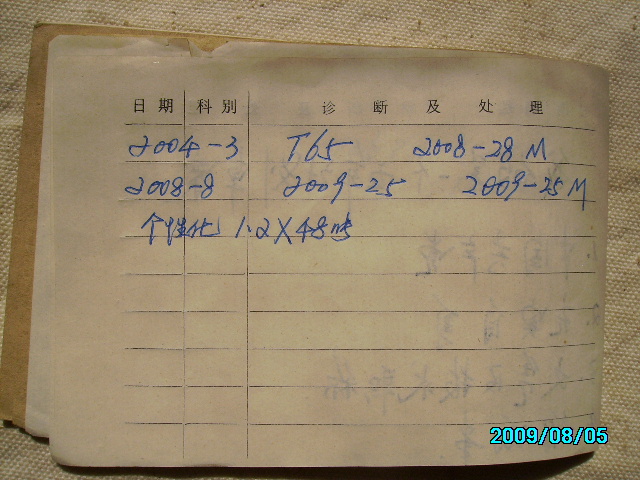 日期 科别 诊断及处理
2004-3 T65 2008-28 M
2008-8 2009-25 2009-25 M
个性化 1.2X48
2009/08/05